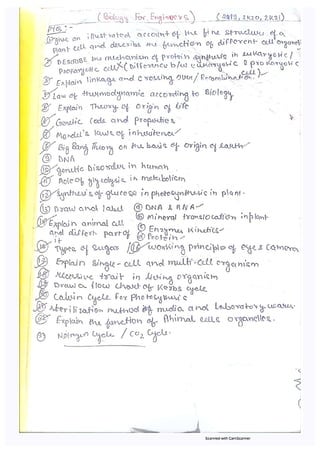 (Biology For Engineers) (2019, 2K20, 2K21)
Give an illustrated account of the fine structure of a
plant cell and describe the function of different cell organells
② DESCRIBE the mechanism of protein synthesis in eukaryotic /
Prokaryotic cell (Difference b/w eukaryotic & prokaryotic cell)
③ Explain linkage and crossing over / Recombination
④ Law of thermodynamic according to Biology
⑤ Explain Theory of Origin of life
⑥ Genetic Code and Properties
⑦ Mendel's laws of inheritence
⑧ Big Bang theory on the basis of origin of earth
⑨ DNA
⑩ genetic Disorder in human
⑪ Role of glycolysis in metabolism
⑫ Synthesis of glucose in photosynthesis in plant.
⑬ Draw and label ⓐ DNA & RNA
ⓑ Mineral translocation in plant
⑭ Explain animal cell
and different part of it
ⓒ Enzymes Kinetics
ⓓ Protein
Types of Sugar ⑯ Working principle of eye & Camera
⑰ Explain Single-cell and multi-cell organism
⑱ Recessive trait in living organism
⑲ Draw a flow chart of Krebs cycle
⑳ Calvin Cycle for Photosynthesis
Sterilization method of media, and laboratory wares
Explain the function of Animal cells organelles.
Nitrogen cycle / CO₂ Cycle.
Scanned with CamScanner